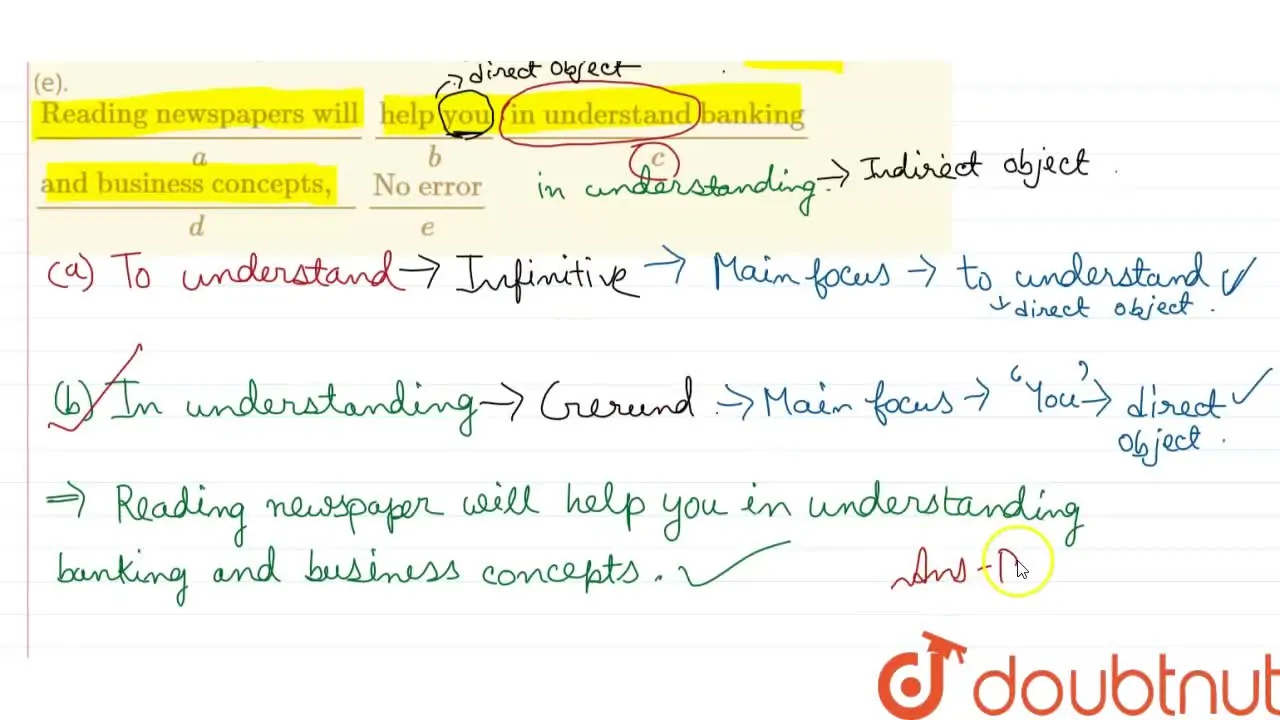 direct object
(e).
Reading newspapers will help you in understand banking
a b c
and business concepts, No error in understanding. → Indirect object.
d e
(a) To understand → Infinitive → Main focus → to understand ✓
↓ direct object.
(b) In understanding → Gerund. → Main focus → "You" → direct ✓
object.
⇒ Reading newspaper will help you in understanding
banking and business concepts. ✓ Ans -
doubtnut